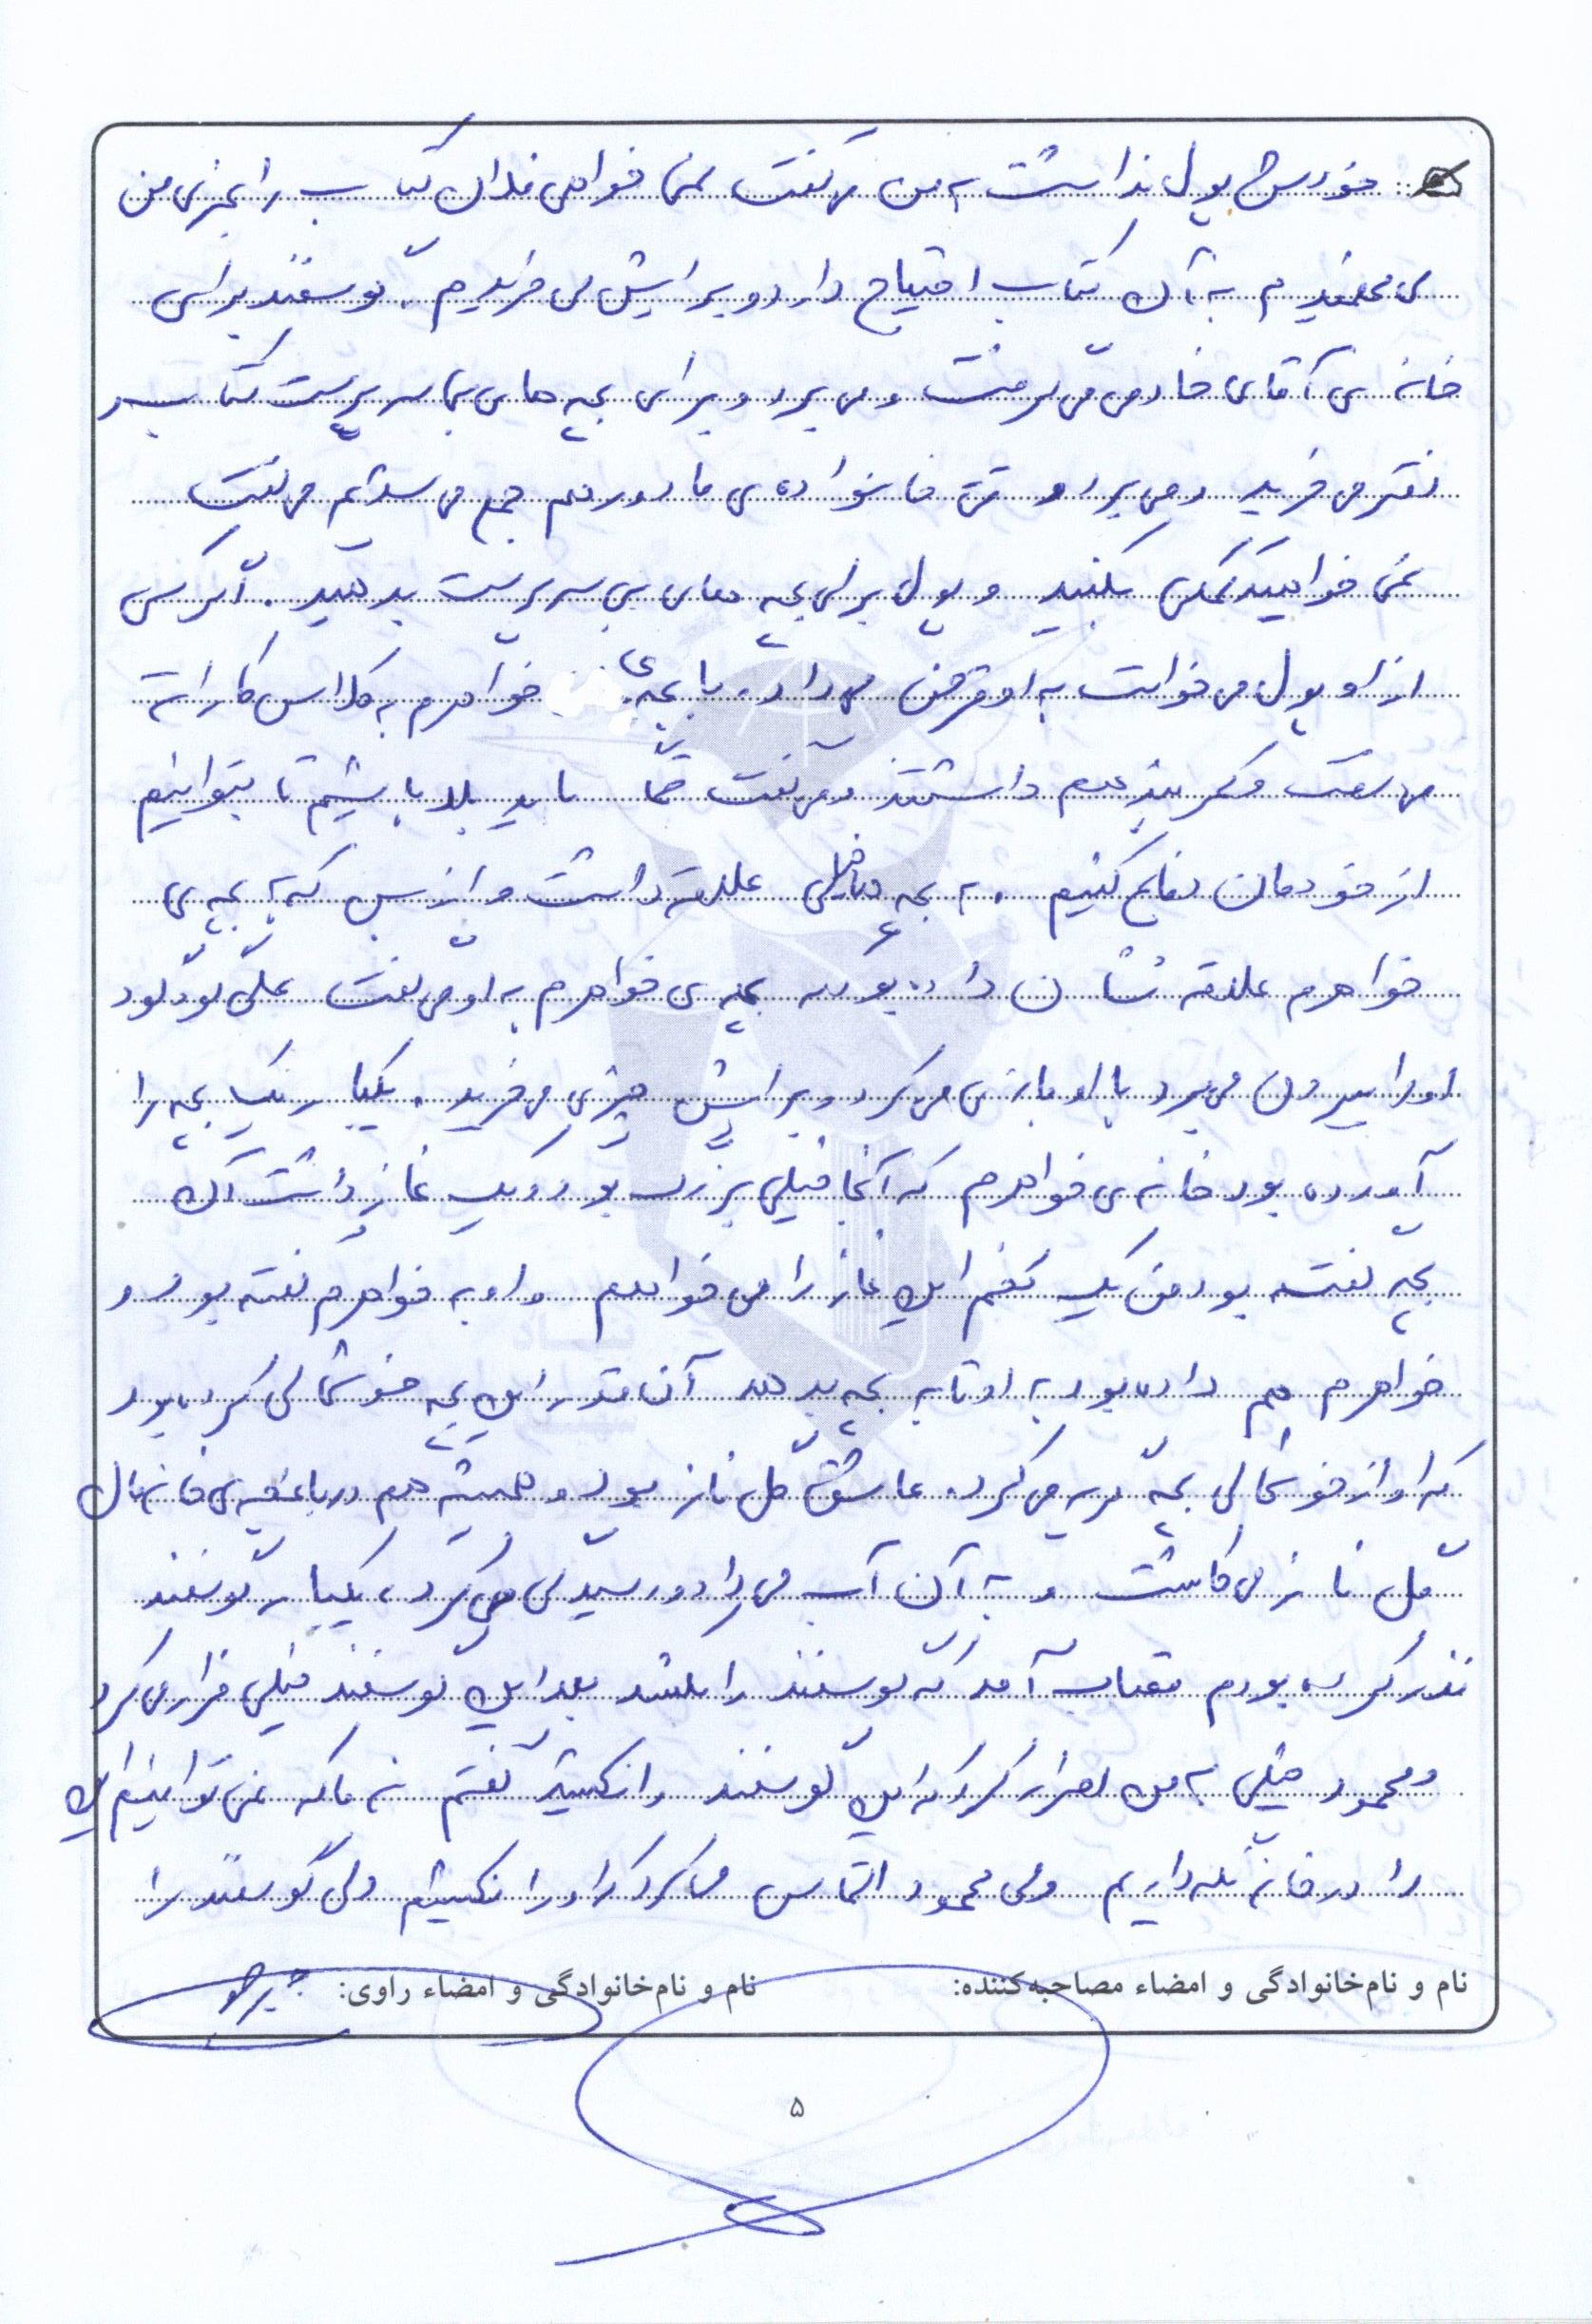 خودش پول نداشت به من می گفت نمی خواهی فلان کتاب را بخری من
می فهمیدم به آن کتاب احتیاج دارد و برایش می خریدم. گوسفند برای
خانه ی آقای خادمی می گرفت و می برد و برای بچه های بی سرپرست کتاب
دفتر می خرید و می برد و حتی خانواده ی ما دور هم جمع می شدیم می گفت
نمی خواهید کمکی بکنید و پول برای بچه های بی سرپرست بدهید. اگر کسی
از او پول می خواست به او قرض می داد. با بچه ی خواهرم به کلاس کاراته
می رفت و کمربند هم داشتند و می گفت حتماً باید بلد باشیم تا بتوانیم
از خودمان دفاع کنیم. به بچه ها خیلی علاقه داشت و از بس که به بچه ی
خواهرم علاقه نشان داده بود که بچه ی خواهرم به او می گفت علی
او را بیرون می برد با او بازی می کرد و برایش چیزی می خرید. یکبار یک بچه را
آورده بود خانه ی خواهرم که آنجا خیلی بزرگ بود و یک غاز داشت آن
بچه گفته بود من یک تخم این غاز را می خواهم و او به خواهرم گفته بود و
خواهرم هم داده بود به او تا به بچه بدهد آن قدر این بچه خوشحالی کرده بود
که او از خوشحالی بچه گریه می کرد. عاشق گل ناز بود و همیشه هم در باغچه ی خانه مان
گل ناز می کاشت و به آن آب می داد و رسیدگی می کرد، یکبار گوسفند
نذر کرده بودم قصاب آمد که گوسفند را بکشد بعد این گوسفند خیلی فرار می کرد
و محمود خیلی به من اصرار کرد که این گوسفند را نکشید گفتم نه ما که نمی توانیم این
را در خانه نگه داریم ولی محمود التماس می کرد که او را نکشیم ولی گوسفند را
نام و نام‌خانوادگی و امضاء مصاحبه‌کننده: نام و نام‌خانوادگی و امضاء راوی:
۵